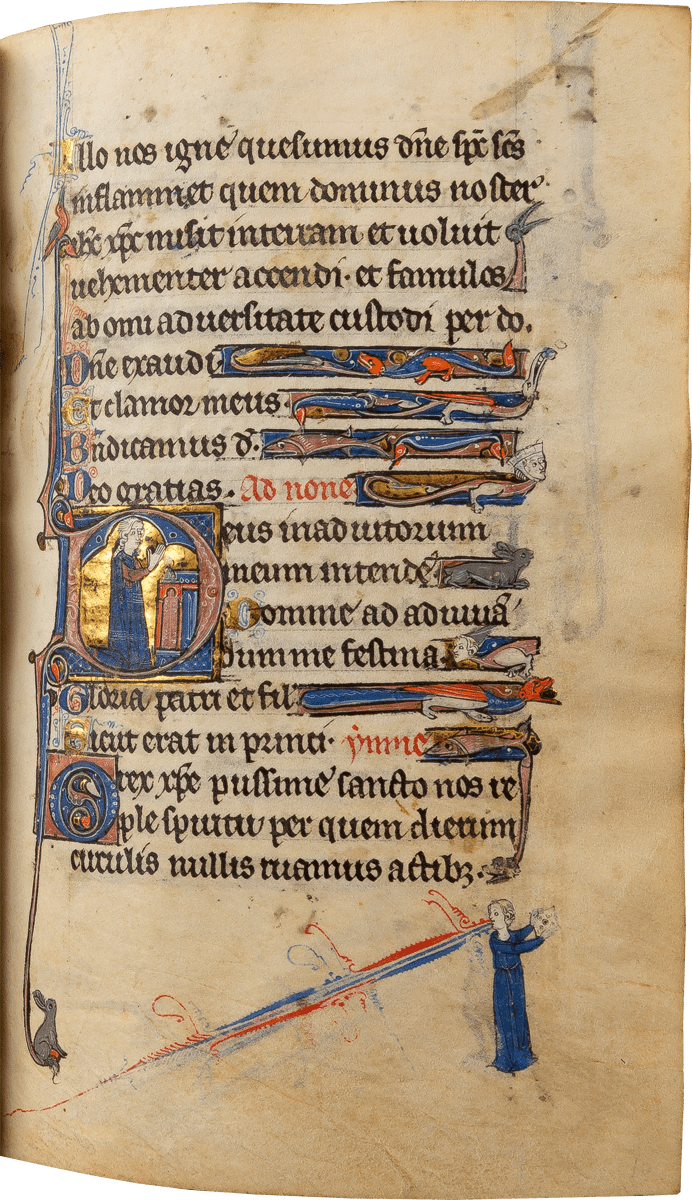 Illo nos igne quesumus dn̄e spc̄ sc̄s
inflammet quem dominus noster
ihc̄ xp̄c misit in terram et uoluit
uehementer accendi. et famulos
ab om̄i aduersitate custodi per do.
Dn̄e exaudi
Et clamor meus
Bn̄dicamus d̄.
Deo gratias. Ad none
Deus in adiutorium
meum intende
Domine ad adiuuā
dum me festina
Gloria patri et fil
Sicut erat in princi. ymne
O rex xp̄e piissime sancto nos re
ple spiritu per quem dierum
circulis nullis ruamus actibꝫ.